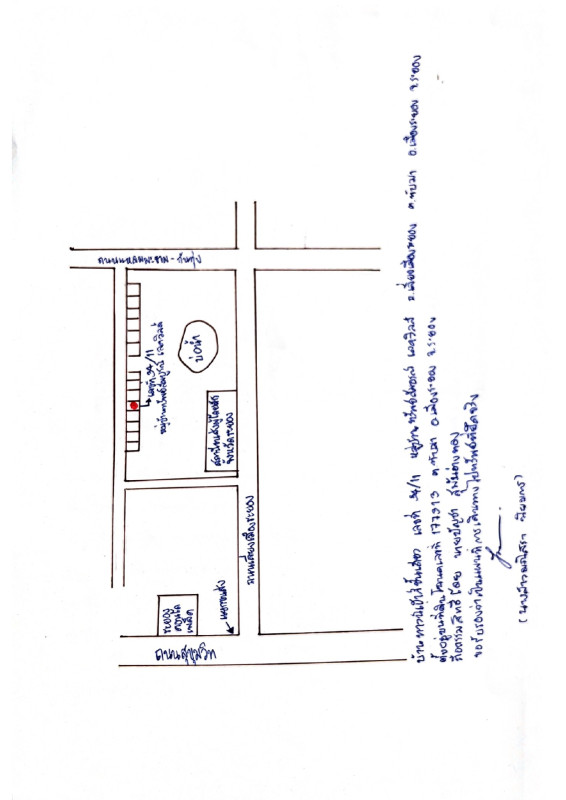 ถนนแหลมมะขาม - ทับทุ่ง
เลขที่ 34/11
หมู่บ้านทรัพย์สมบูรณ์ เลควิลล์
บ่อน้ำ
จังหวัดระยอง
ถนนเลี่ยงเมืองระยอง
ระยอง
แยกขนส่ง
ถนนสุขุมวิท
บ้านทาวน์เฮ้าส์ชั้นเดียว เลขที่ 34/11 หมู่บ้านทรัพย์สมบูรณ์ เลควิลล์ ถ.เลี่ยงเมืองระยอง ต.ทับมา อ.เมืองระยอง จ.ระยอง
ตั้งอยู่บนที่ดินโฉนดเลขที่ 177913 ต.ทับมา อ.เมืองระยอง จ.ระยอง
ถือกรรมสิทธิ์โดย นายบัญชา
ขอรับรองว่าเป็นแผนที่การเดินทางไปทรัพย์ที่ยึดจริง